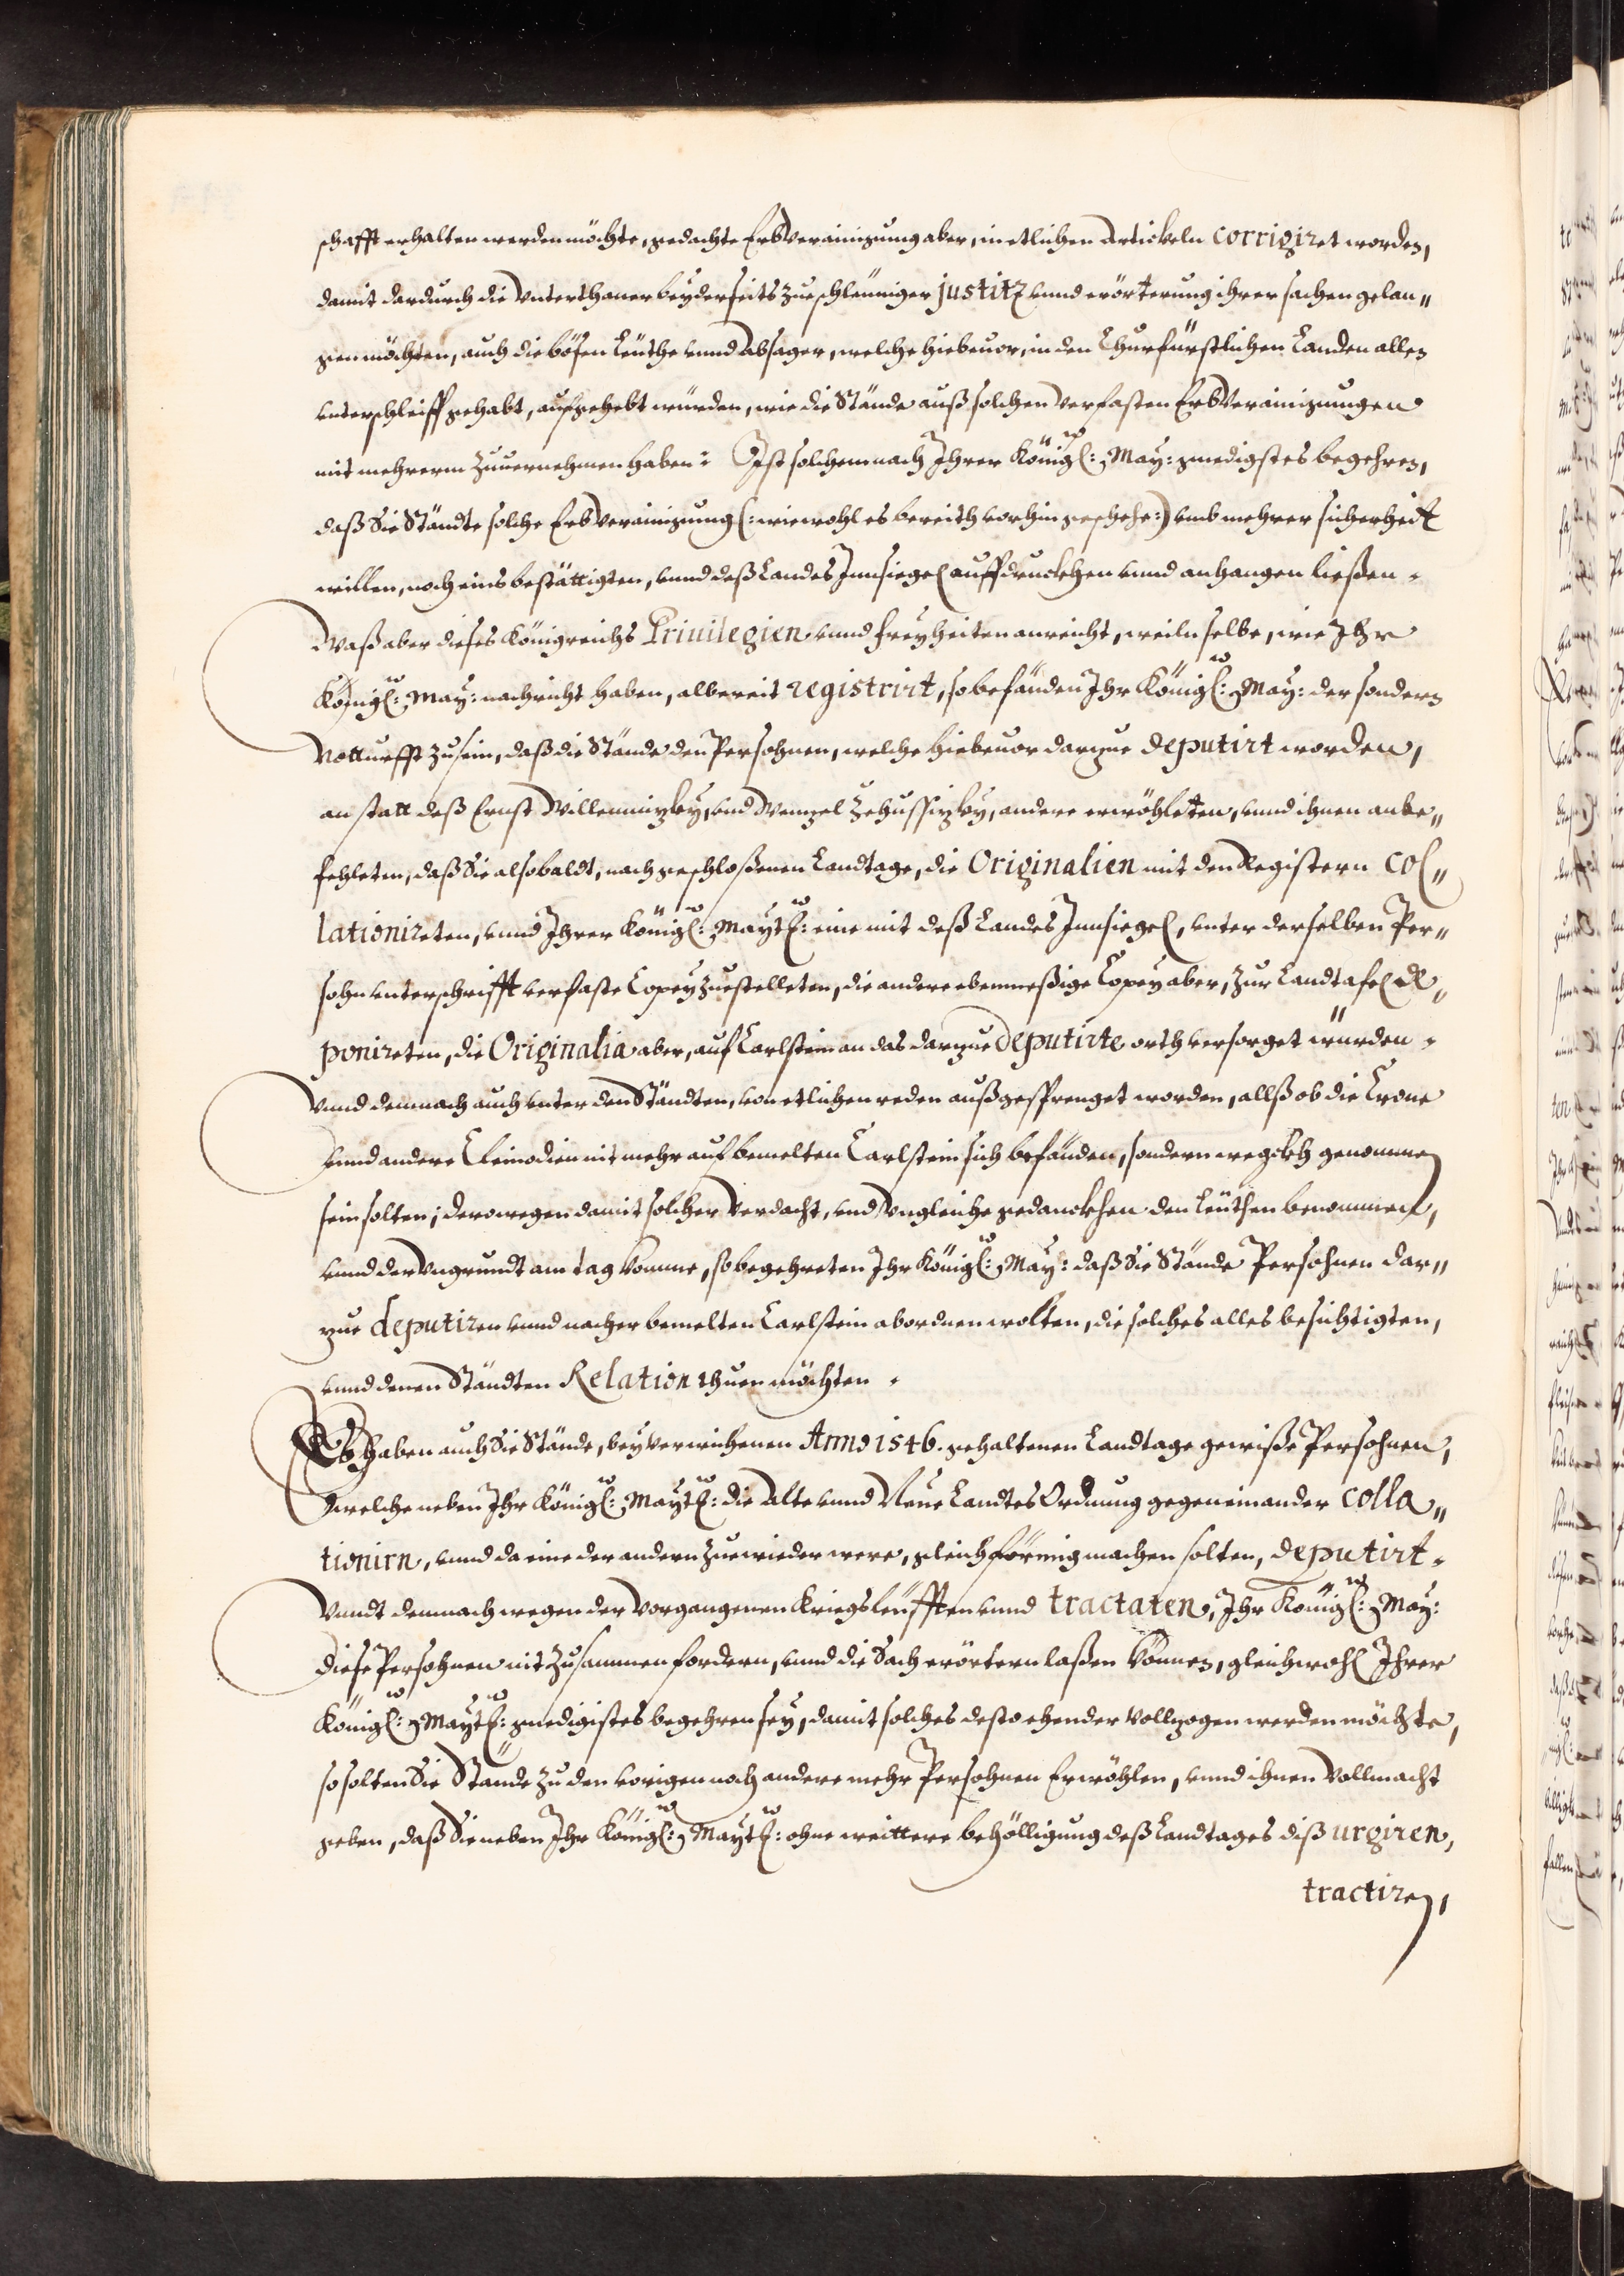 schafft erhalten werden möchte, gedachte ErbVerainigung aber, in etlichen Artickeln corrigiret worden,
damit dardurch die Unterthaner beyderseits zue schleüniger justitz vnnd erörterung ihrer sachen gelan„
gen möchten, auch die bösen Leüthe vnnd Absager, welche hiebeuor, in den Churfürstlichen Landen allen
vnterschleiff gehabt, aufgehebt würden, wie die Stände auß solchen verfasten ErbVerainigungen
mit mehrerm zuuernehmen haben: Ist solchem nach Ihrer Königl: May: gnedigstes begehren,
daß Sie Ständte solche ErbVerainigung (: wiewohl es bereith vorhin geschehe:) vmb mehrer sicherheit
willen, noch eins bestättigten, vnnd deß Landes Innsiegel auffdruckhen vnnd anhangen ließen.
Waß aber dieses Königreichs Priuilegien vnnd freyheiten anreicht, weiln selbe, wie Ihr
Königl: May: nachricht haben, albereit registrirt, so befänden Ihr Königl: May: der sondern
Notturfft zu sein, daß die Stände den Persohnen, welche hiebeuor darzue deputirt worden,
an statt deß Ernst Villemnizky, vnd Wenzel Zehussizky, andere erwöhleten, vnnd ihnen anbe„
fehleten, daß Sie alsobaldt, nach geschloßenen Landtage, die Originalien mit den Registern col„
lationireten, vnnd Ihrer Königl: Maytl: eine mit deß Landes Innsiegel, vnter derselben Per„
sohn vnterschrifft verfaste Copey zuestelleten, die andere ebenmeßige Copey aber, zur Landtafel de„
ponireten, die Originalia aber, auf Carlstein an das darzue deputirte orth versorget würden.
Vnnd demnach auch vnter den Ständten, von etlichen reden außgesprenget worden, allß ob die Crone
vnnd andere Cleinodien nit mehr auf bemelten Carlstein sich befänden, sondern wegkh genommen
sein solten; derowegen damit solcher verdacht, vnd vngleiche gedanckhen den Leüthen benommen,
vnnd der vngrundt am tag komme, so begehreten Ihr Königl: May: daß Sie Stände Persohnen dar„
zue deputiren vnnd nacher bemelten Carlstein abordnen wolten, die solches alles besichtigten,
vnnd denen Ständten Relation thuen möchten.
Es haben auch Sie Stände, bey verwichenen Anno 1546. gehaltenen Landtage gewiße Persohnen,
welche neben Ihr Königl: Maytl: die Alte vnnd Neue Landtes Ordnung gegeneinander colla„
tionirn, vnnd da eine der andern zuewieder were, gleichförmig machen solten, deputirt.
Vnndt demnach wegen der vorgangenen Kriegsleüfften vnnd tractaten, Ihr Königl: May:
diese Persohnen nit zusammen fordern, vnnd die Sach erörtern laßen können, gleichwohl Ihrer
Königl: Maytl: gnedigistes begehren sey, damit solches desto ehender vollzogen werden möchte,
so solten Sie Stände zu den vorigen noch andere mehr Persohnen Erwöhlen, vnnd ihnen Vollmacht
geben, daß Sie neben Ihr Königl: Maytl: ohne weittere behölligung deß Landtages diß urgiren,
tractiren,